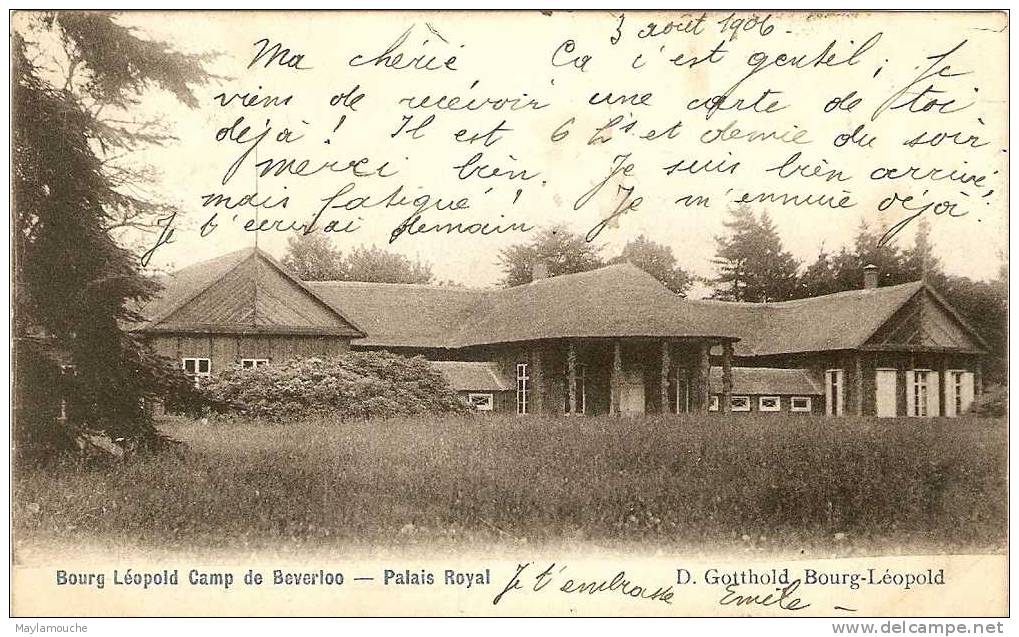 3 août 1906.
Ma chérie Ca c'est gentil, Je
viens de recevoir une carte de toi
déjà ! Il est 6 h et demie du soir
merci bèn. Je suis bèn arrivé,
mais fatigué ! Je m'ennuie déjà.
Je t'écrirai demain
Bourg Léopold Camp de Beverloo — Palais Royal
Je t'embrasse Emile —
D. Gotthold, Bourg-Léopold
Maylamouche
www.delcampe.net